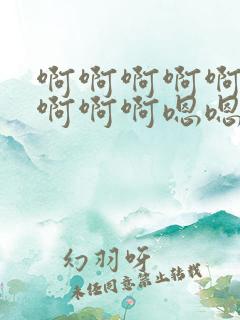 啊啊啊啊啊
啊啊啊嗯嗯
幻羽呀
未经同意禁止转载